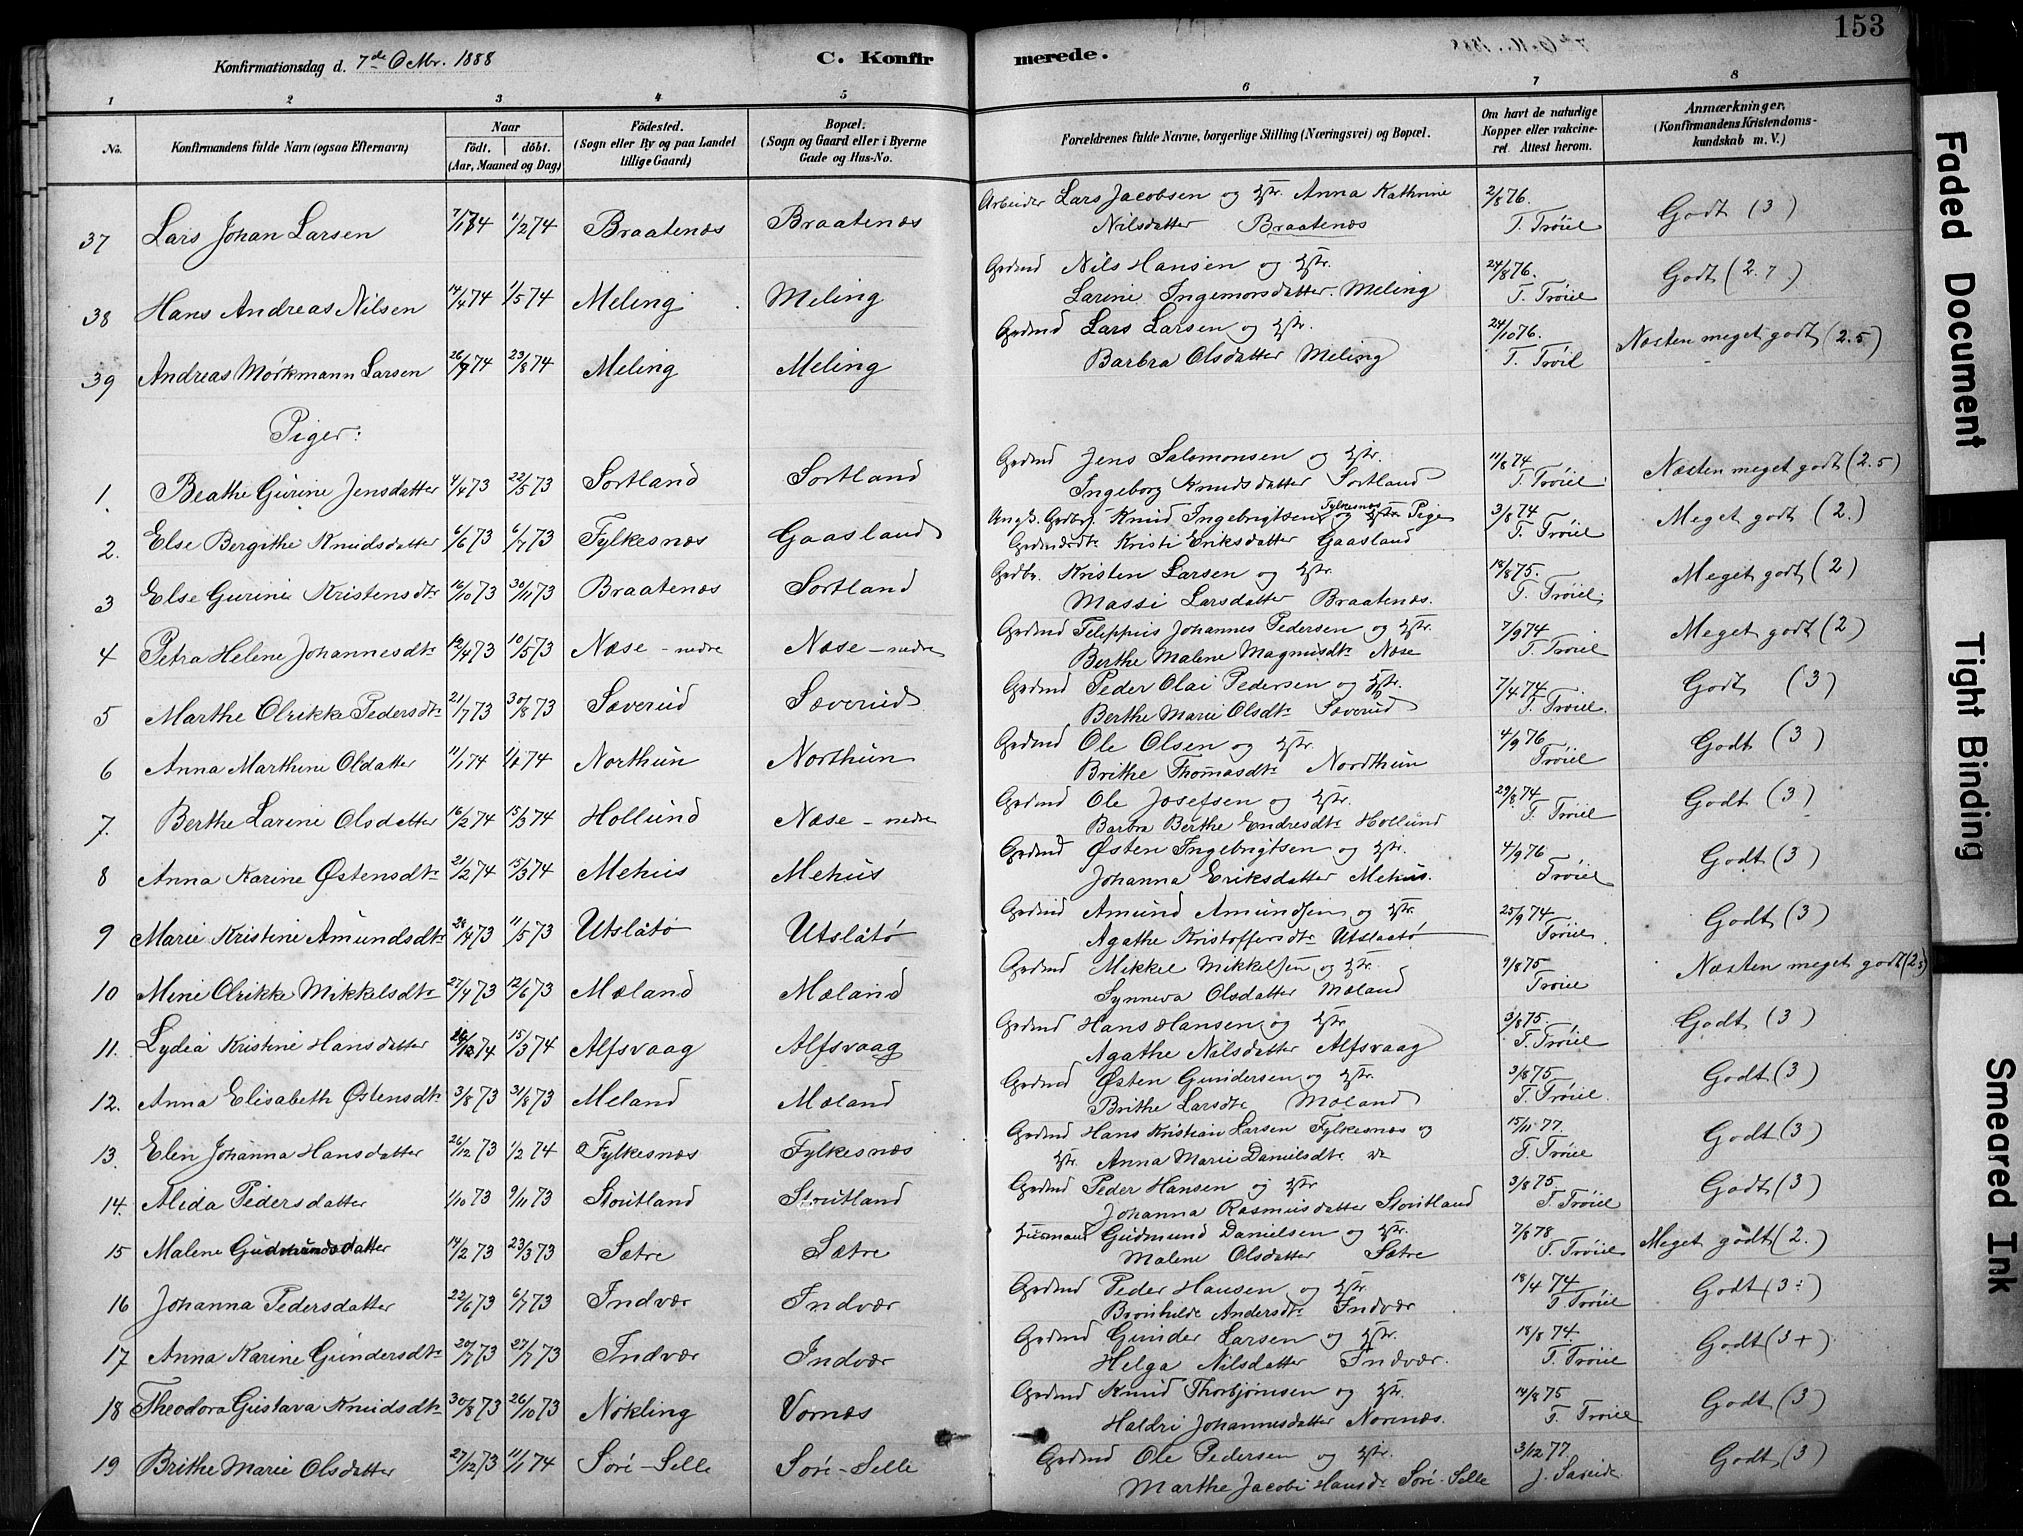 153
Konfirmationsdag d. 7de Octbr. 1888 C. Konfirmerede.
1 2 3 4 5 6 7 8
No. Konfirmandens fulde Navn (ogsaa Efternavn) Naar Födt. döbt. (Aar, Maaned og Dag) Födested. (Sogn eller By og paa Landet tillige Gaard) Bopæl. (Sogn og Gaard eller i Byerne Gade og Hus-No. Forældrenes fulde Navne, borgerlige Stilling (Næringsvei) og Bopæl. Om havt de naturlige Kopper eller vakcineret. Attest herom. Anmærkninger. (Konfirmandens Kristendomskundskab m. V.)
37 Lars Johan Larsen 7/1 74 1/2 74 Braatenæs Braatenæs Arbeider Lars Jacobsen og Hstr. Anna Kathrine 2/8 76. Godt (3)
Nilsdatter Braatenæs T. Trøiel
38 Hans Andreas Nilsen 14/4 74 1/5 74 Meling Meling Grdmd Nils Hansen og Hstr. 24/8 76. Godt (2.7.)
Larine Ingemorsdatter. Meling T. Trøiel
39 Andreas Mørkmann Larsen 26/7 74 23/8 74 Meling Meling Grdmd Lars Larsen og Hstr. 24/10 76. Næsten meget godt (2.5)
Barbra Olsdatter Meling T. Trøil
Piger:
1. Beathe Gurine Jensdatter 4/4 73 22/5 73 Sortland Sortland Grdmd Jens Salomonsen og Hstr. 11/8 74 Næsten meget godt (2.5)
Ingeborg Knudsdatter Sortland T. Trøiel
2. Else Bergithe Knudsdatter 6/6 73 6/7 73 Fylkesnæs Gaasland Ungk. Grdbr. Knud Ingebrigtsen Fylkesnæs og Pige 3/8 74 Meget godt (2.)
Grdmdsdtr Kristi Eriksdatter Gaasland T. Trøiel
3 Else Gurine Kristensdtr 16/10 73 30/11 73 Braatenæs Sortland Grdbr. Kristen Larsen og Hstr. 18/8 75. Meget godt (2)
Massi Larsdatter Braatenæs. T. Trøiel.
4 Petra Helene Johannesdtr 12/4 73 10/5 73 Næse - nedre Næse - nedre Grdmd Filippus Johannes Pedersen og Hstr. 7/9 74 Meget godt (2)
Berthe Malene Magnusdtr Næse T. Trøiel
5 Marthe Olrikke Pedersdtr 21/7 73 30/8 73 Sæverud Sæverud Grdmd Peder Olai Pedersen og Hstr. 7/4 74 Godt (3)
Berthe Marie Olsdtr Sæverud T. Trøiel.
6 Anna Marthine Oldatter 11/1 74 1/6 74 Northun Northun Grdmd Ole Olsen og Hstr. 4/9 76 Godt (3)
Brithe Thomasdtr Nordthun Trøiel
7. Berthe Larine Olsdatter 16/2 74 15/3 74 Hollund Næse - nedre Grdmd Ole Josefsen og Hstr. 29/8 74 Godt (3)
Barbra Berthe Endresdtr Hollund T. Trøiel
8 Anna Karine Østensdtr 21/2 74 15/3 74 Mehus Mehus Grdmd Østen Ingebrigtsen og Hstr. 4/9 76 Godt (3)
Johanna Eriksdatter Mehus. Trøiel
9 Marie Kristine Amundsdtr 28/4 73 11/5 73 Utslåtø Utslåtø Grdmd Amund Amundsen og Hstr. 25/9 74 Godt (3)
Agathe Kristoffersdtr Utslaatø Trøiel
10 Mine Olrikke Mikkelsdtr 27/4 73 12/6 73 Mæland Mæland Grdmd Mikkel Mikkelsen og Hstr. 9/8 75 Næsten meget godt (2.5)
Synneva Olsdatter Mæland Trøiel
11. Lydia Kristine Hansdatter 74 15/3 74 Alfsvaag Alfsvaag Grdmd Hans Hansen og Hstr. 3/8 75. Godt (3)
Agathe Nilsdatter Alfsvaag T. Trøiel
12. Anna Elisabeth Østensdtr 3/8 73 31/8 73 Meland Mæland Grdmd Østen Gundersen og Hstr. 3/8 75 Godt (3)
Brithe Larsdtr Mæland T. Trøiel.
13. Elen Johanna Hansdatter 26/12 73 1/2 74 Fylkesnæs Fylkesnæs Grdmd Hans Kristian Larsen Fylkesnæs og 15/11 77. Godt (3)
Hstr. Anna Marie Danielsdtr T. Trøiel
14. Alida Pedersdatter 1/10 73 9/11 73 Stoutland Stoutland Grdmd Peder Hansen og Hstr 3/8 75. Godt (3)
Johanna Rasmusdatter Stoutland T. Trøiel
15 Malene Gudmundsdatter 14/2 73 23/3 73 Sætre Sætre Husmand Gudmund Danielsen og Hstr. 7/8 78 Meget godt (2.)
Malene Olsdatter Sætre T. Trøiel
16 Johanna Pedersdatter 22/6 73 6/7 73 Indvær Indvær Grdmd Peder Hansen og Hstr. 18/4 74 Godt (3÷)
Brønhilde Andersdtr Indvær T. Trøiel
17 Anna Karine Gundersdtr 20/7 73 27/7 73 Indvær Indvær Grdmd Gunder Larsen og Hstr. 18/8 74. Godt (3+)
Helga Nilsdatter Indvær. T. Trøiel
18 Theodora Gustava Knudsdtr 30/8 73 26/10 73 Nøkling Vornæs Grdmd Knud Thorbjørnsen og Hstr. 14/8 75 Godt (3)
Haldri Johannesdatter Nornæs. T. Trøiel
19 Brithe Marie Olsdatter 27/12 73 11/1 74 Søre-Selle Søre-Selle Grdmd Ole Pedersen og Hstr. 3/12 77. Godt (3)
Marthe Jacobi Hansdr Søre-Selle
Faded Document
Tight Binding
Smeared Ink